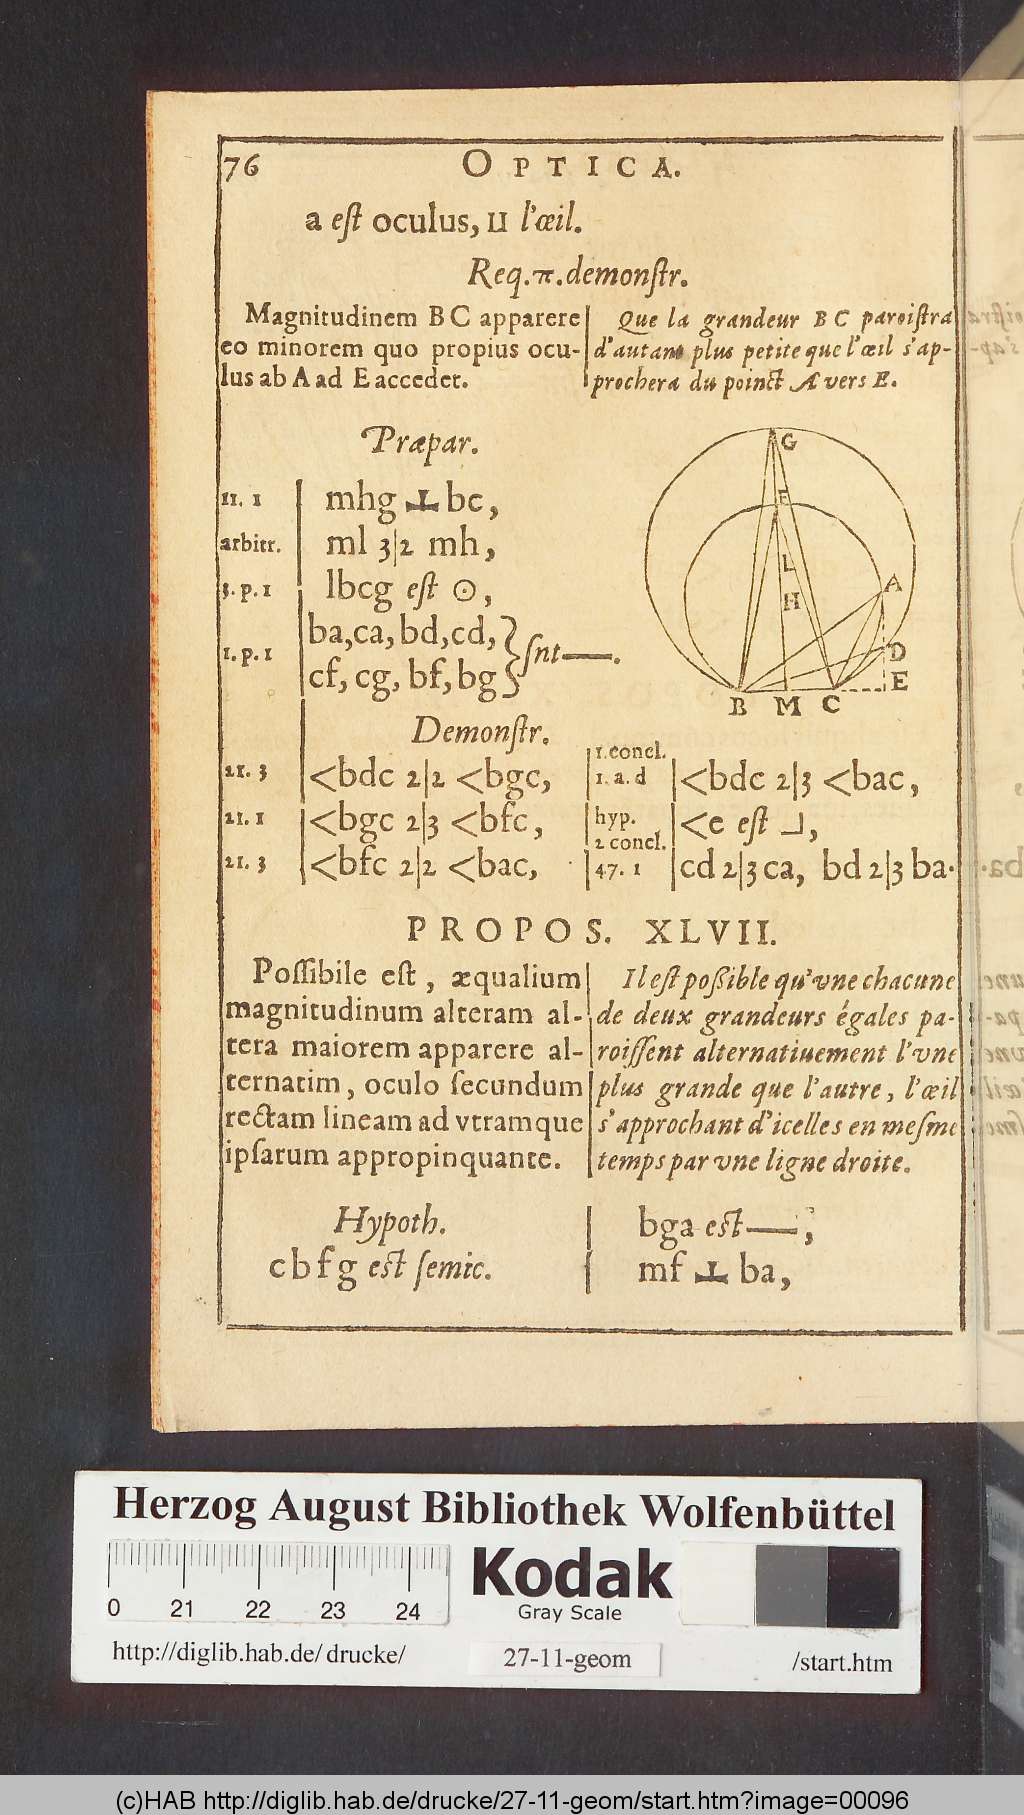 76 OPTICA.
a eſt oculus, II l'œil.
Req.π.demonſtr.
Magnitudinem BC apparere
eo minorem quo propius ocu-
lus ab A ad E accedet.
Que la grandeur BC paroiſtra
d'autant plus petite que l'œil s'ap-
prochera du poinct A vers E.
Præpar.
11. 1 mhg ⊥ bc,
arbitr. ml 3|2 mh,
5. p. 1 lbcg eſt ⊙,
1. p. 1 ba,ca,bd,cd,
cf, cg, bf, bg } ſnt —.
G
F
L
H
A
D
E
B M C
Demonſtr.
21. 3 <bdc 2|2 <bgc,
21. 1 <bgc 2|3 <bfc,
21. 3 <bfc 2|2 <bac,
1.concl.
1. a. d <bdc 2|3 <bac,
hyp. <e eſt ┘,
2 concl.
47. 1 cd 2|3 ca, bd 2|3 ba.
PROPOS. XLVII.
Poſſibile eſt, æqualium
magnitudinum alteram al-
tera maiorem apparere al-
ternatim, oculo ſecundum
rectam lineam ad vtramque
ipſarum appropinquante.
Il eſt poßible qu'vne chacune
de deux grandeurs égales pa-
roiſſent alternatiuement l'vne
plus grande que l'autre, l'œil
s'approchant d'icelles en meſme
temps par vne ligne droite.
Hypoth.
cbfg eſt ſemic.
bga eſt —,
mf ⊥ ba,
Herzog August Bibliothek Wolfenbüttel
0 21 22 23 24
Kodak
Gray Scale
http://diglib.hab.de/drucke/ 27-11-geom /start.htm
(c)HAB http://diglib.hab.de/drucke/27-11-geom/start.htm?image=00096